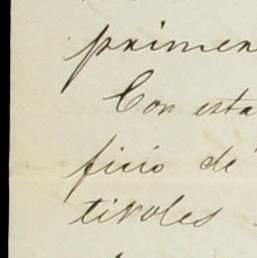 primer
Con esta
ficio de
tivoles